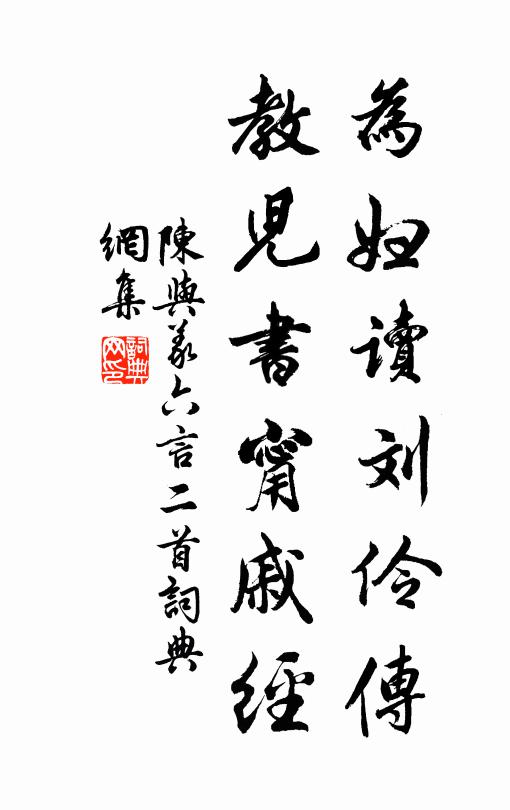 為妇讀刘伶傳
教兒書甯戚經
陳與義六言二首詞典
網集
詞典網印